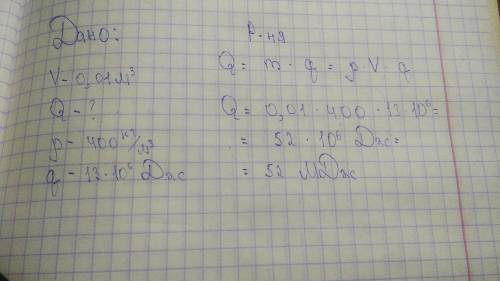 Дано:
V - 0,01 м³
Q - ?
p - 400 кг/м³
q - 13 · 10⁶ Дж
Р-ня
Q = m · q = p V · q
Q = 0,01 · 400 · 13 · 10⁶ =
= 52 · 10⁶ Дж =
= 52 МДж